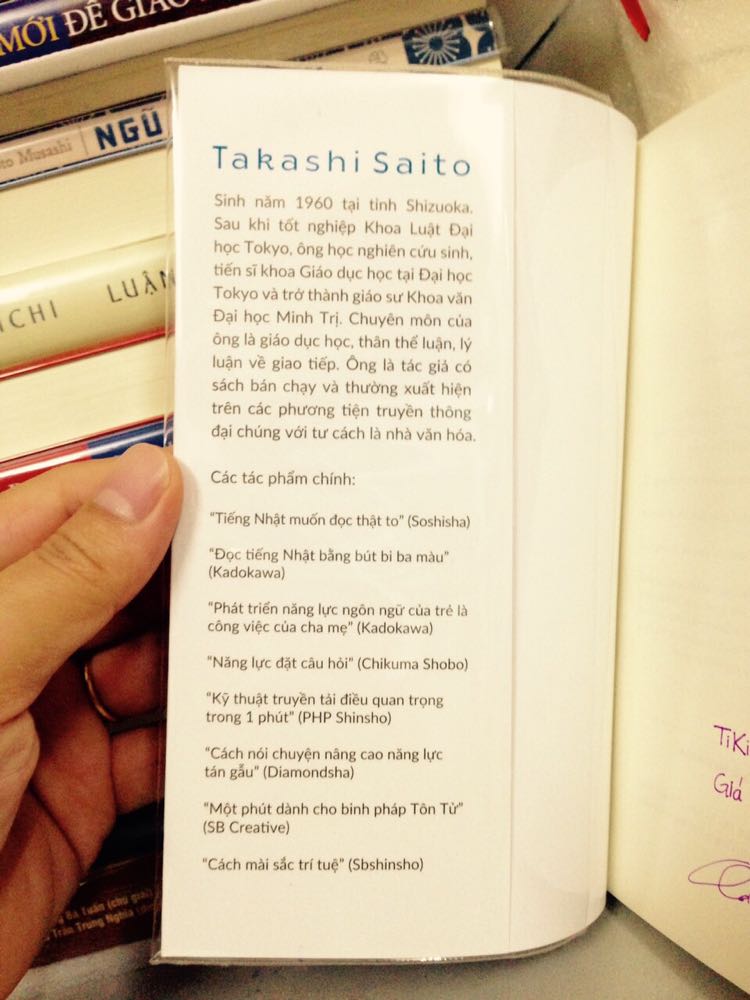 MỚI ĐỀ GIÁO
Musashi
NGŨ
ICHI LUẬN
Takashi Saito
Sinh năm 1960 tại tỉnh Shizuoka.
Sau khi tốt nghiệp Khoa Luật Đại
học Tokyo, ông học nghiên cứu sinh,
tiến sĩ khoa Giáo dục học tại Đại học
Tokyo và trở thành giáo sư Khoa văn
Đại học Minh Trị. Chuyên môn của
ông là giáo dục học, thân thể luận, lý
luận về giao tiếp. Ông là tác giả có
sách bán chạy và thường xuất hiện
trên các phương tiện truyền thông
đại chúng với tư cách là nhà văn hóa.
Các tác phẩm chính:
“Tiếng Nhật muốn đọc thật to” (Soshisha)
“Đọc tiếng Nhật bằng bút bi ba màu”
(Kadokawa)
“Phát triển năng lực ngôn ngữ của trẻ là
công việc của cha mẹ” (Kadokawa)
“Năng lực đặt câu hỏi” (Chikuma Shobo)
“Kỹ thuật truyền tải điều quan trọng
trong 1 phút” (PHP Shinsho)
“Cách nói chuyện nâng cao năng lực
tán gẫu” (Diamondsha)
“Một phút dành cho binh pháp Tôn Tử”
(SB Creative)
“Cách mài sắc trí tuệ” (Sbshinsho)
Tiki
Giá
Bá Tuấn (chủ giải)
Trần Trung Nghĩa